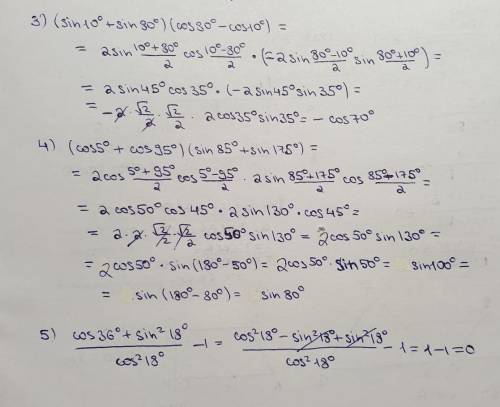 3) (sin10° + sin80°)(cos80° - cos10°) =
= 2sin (10°+80°)/2 cos (10°-80°)/2 · (-2sin (80°-10°)/2 sin (80°+10°)/2) =
= 2sin45° cos35° · (-2sin45° sin35°) =
= -2 · √2/2 · √2/2 · 2cos35° sin35° = - cos70°
4) (cos5° + cos95°)(sin85° + sin175°) =
= 2cos (5°+95°)/2 cos (5°-95°)/2 · 2sin (85°+175°)/2 cos (85°-175°)/2 =
= 2cos50° cos45° · 2sin130° · cos45° =
= 2 · 2 · √2/2 · √2/2 cos50° sin130° = 2cos50° sin130° =
= 2cos50° · sin(180°-50°) = 2cos50° · sin50° = sin100° =
= sin(180°-80°) = sin80°
5) (cos36° + sin²18°)/cos²18° - 1 = (cos²18° - sin²18° + sin²18°)/cos²18° - 1 = 1 - 1 = 0